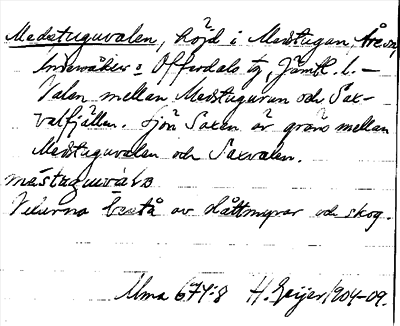 Medstuguvalen, höjd i Medstugan, Åre sn,
Undersåkers o Offerdals tg, Jämtl. l. —
Valen mellan Medstuguvan och Sax-
valfjällen. Sjön Saxen är gräns mellan
Medstuguvalen och Saxvalen.
Valarna bestå av slåttmyrar och skog.
Ulma 677:8 H. Geijer 1904-09.